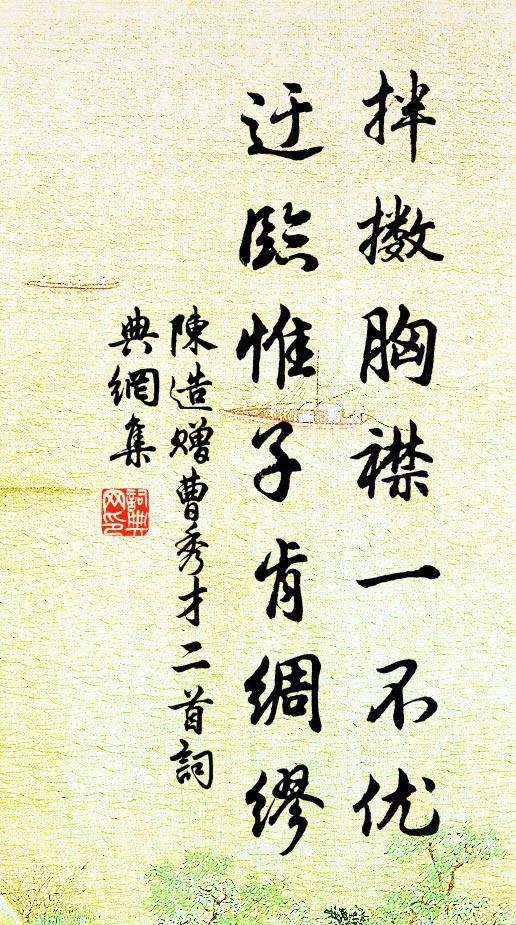 拌擞胸襟一不优
迂臨惟子肯綢繆
陳造赠曹秀才二首詞
典網集
詞典
网印